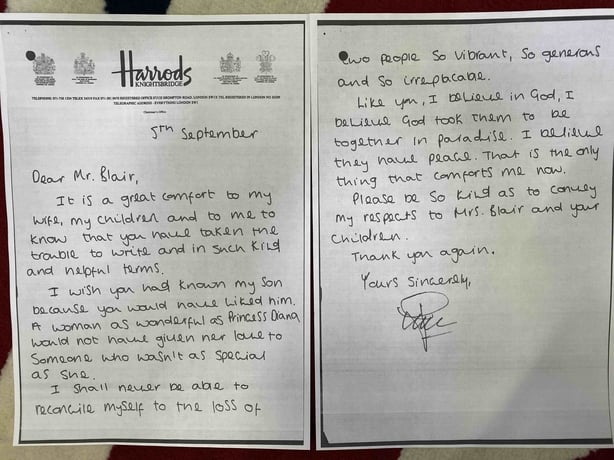 Harrods
KNIGHTSBRIDGE
TELEGRAPHIC ADDRESS · EVERYTHING LONDON SW1
Chairman's Office
5TH September
Dear Mr. Blair,
It is a great comfort to my
wife, my children and to me to
know that you have taken the
trouble to write and in such kind
and helpful terms.
I wish you had known my son
because you would have liked him.
A woman as wonderful as Princess Diana
would not have given her love to
someone who wasn't as special
as she.
I shall never be able to
reconcile myself to the loss of
two people so vibrant, so generous
and so irreplacable.
Like you, I believe in God, I
believe God took them to be
together in Paradise. I believe
they have peace. That is the only
thing that comforts me now.
Please be so kind as to convey
my respects to Mrs. Blair and your
children.
Thank you again.
Yours sincerely,